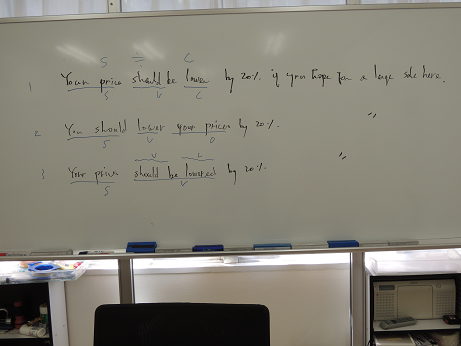 S ≒ C
1 Your price should be lower by 20% if you hope for a large sale here.
S V C
2 You should lower your price by 20%. "
S V O
V C
3 Your price should be lowered by 20%. "
S V